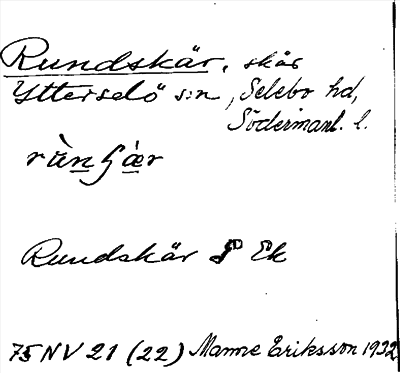 Rundskär, skär
Ytterselö s:n, Selebo hd,
Södermanl. l.
Rundskär Ek
75 NV 21 (22) Manne Eriksson 1932